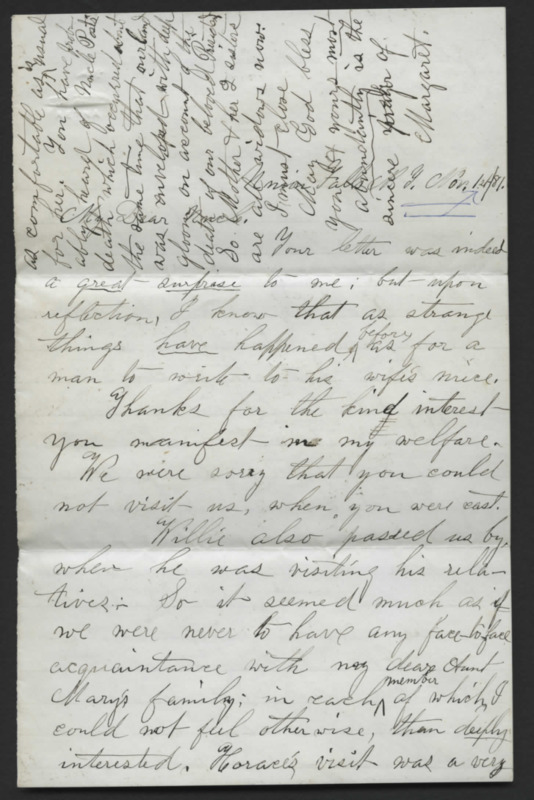 Falls N.Y. Nov. 14/81.
My Dear Uncle.
Your letter was indeed
a great surprise to me; but upon
reflection, I know that as strange
things have happened before as for a
man to write to his wife's niece.
Thanks for the kind interest
you manifest in my welfare.
We were sorry that you could
not visit us, when you were east.
Willie also passed us by,
when he was visiting his rela-
tives; So it seemed much as if
we were never to have any face to face
acquaintance with my dear Aunt
Mary's family; in each member of which, I
could not feel otherwise, than deeply
interested. Horace's visit was a very
as comfortable as is usual
for her. You have prob-
ably heard of Uncle Post's
death which occurred about
the same time that our land
was enveloped with deep
gloom on account of the
death of our beloved President
So Mother & her 2 sisters
are all widows now.
I must close
May God bless
you & yours most
abundantly is the
sincere prayer of
Margaret.